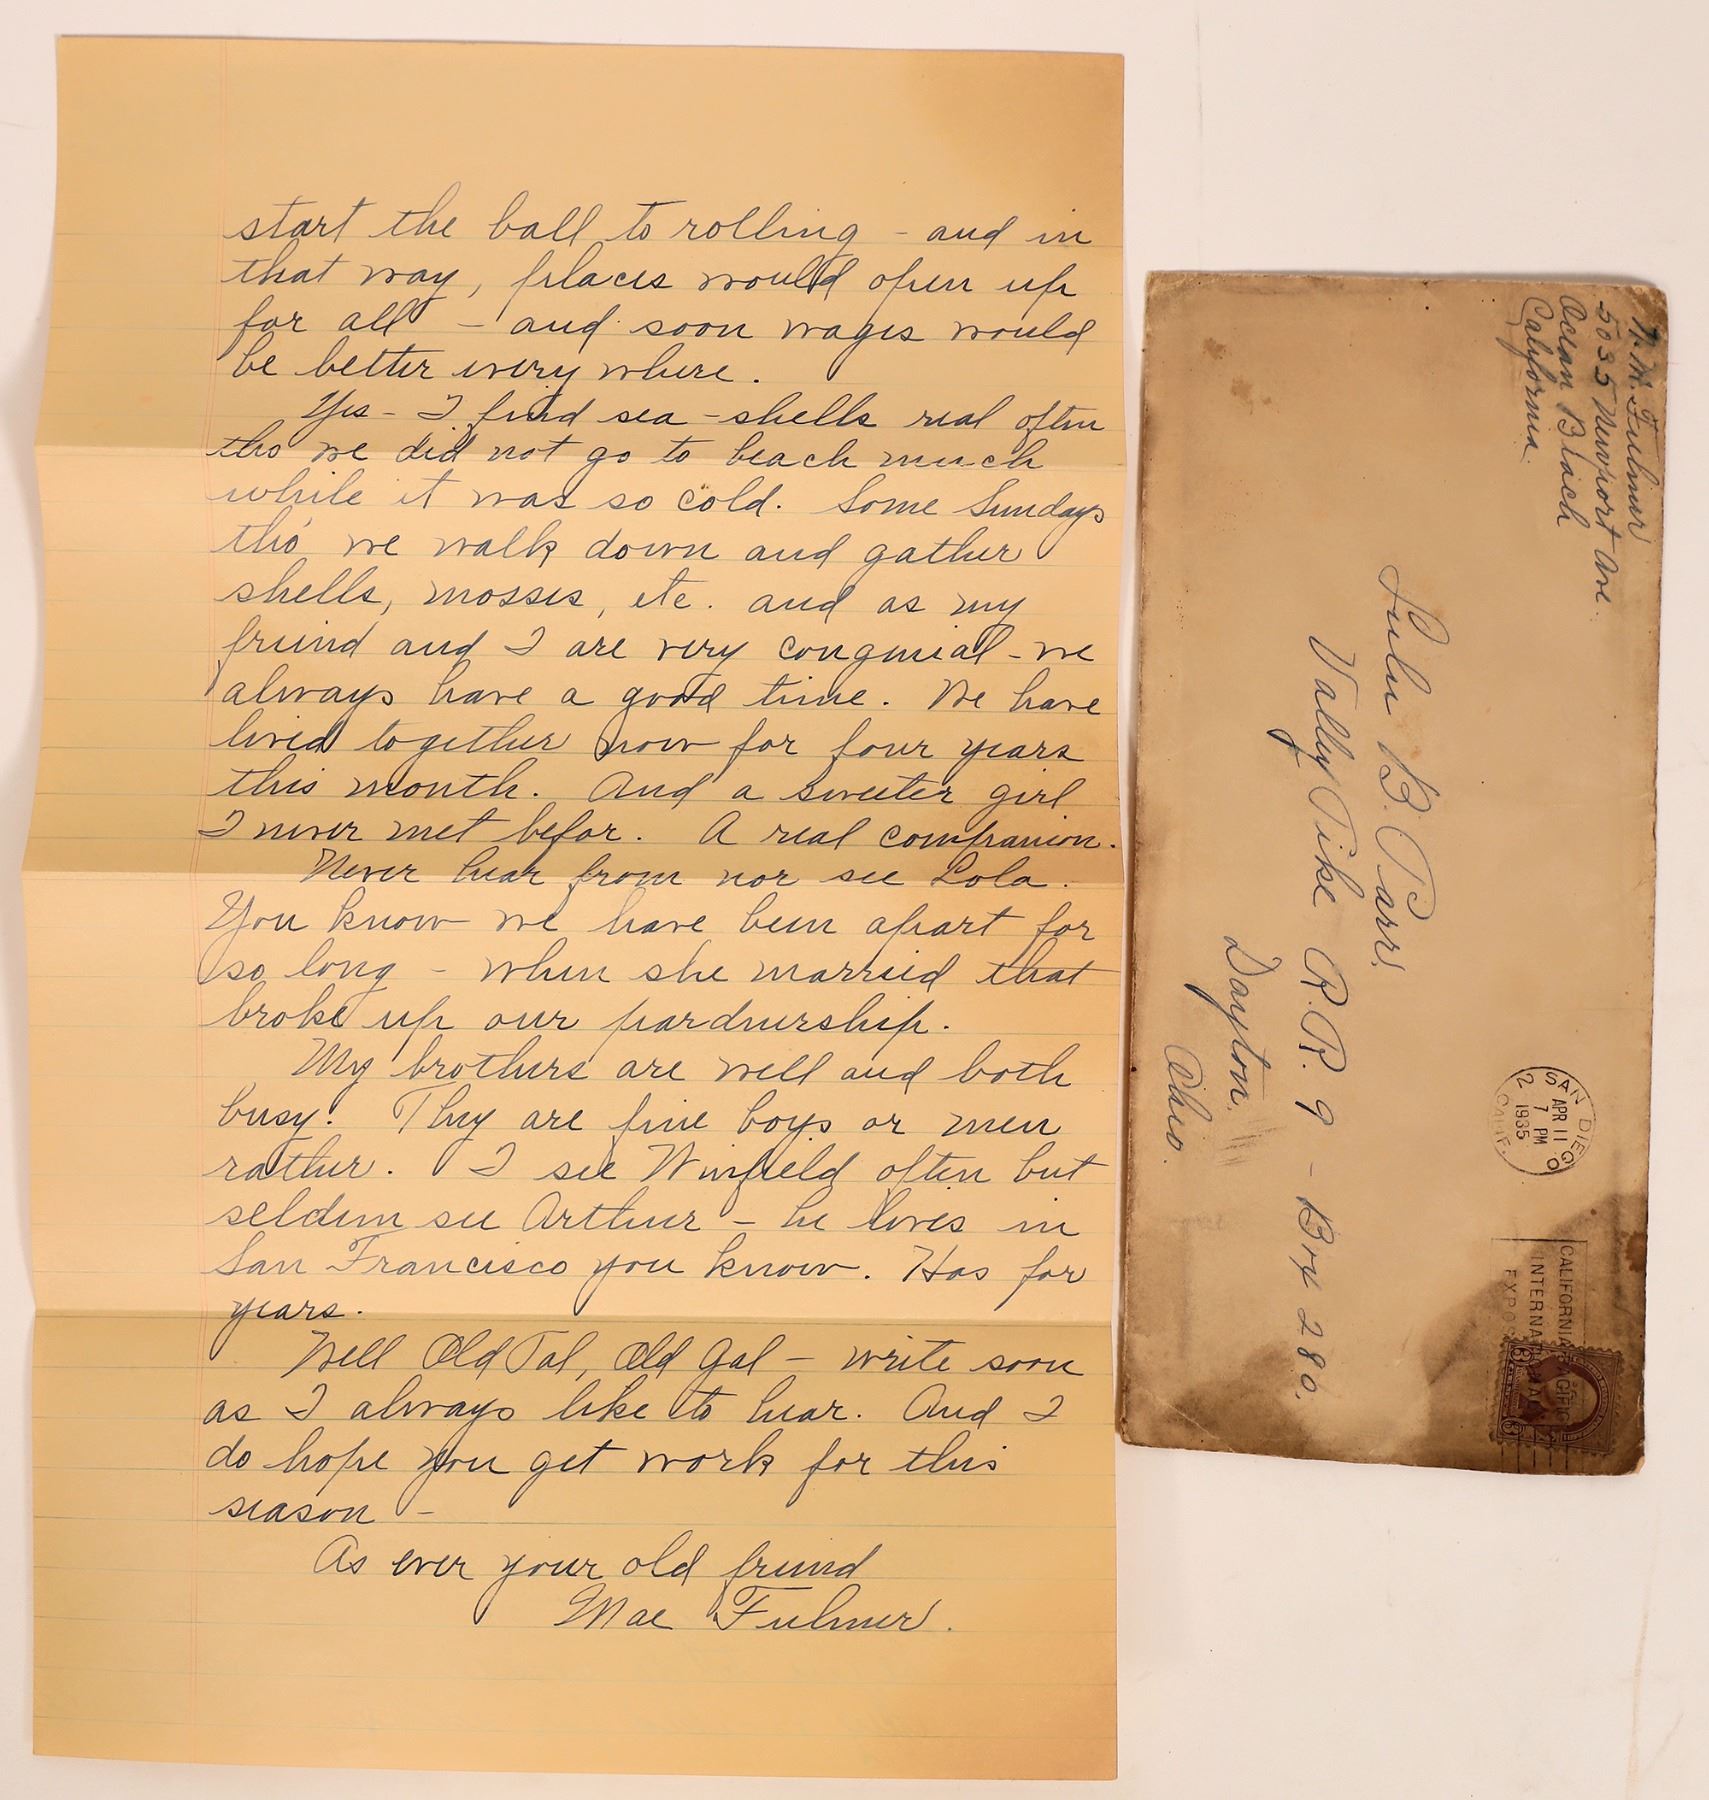 start the ball to rolling - and in
that way, places would open up
for all - and soon wages would
be better every where.
Yes - I find sea-shells real often
tho we did not go to beach much
while it was so cold. Some Sundays
tho' we walk down and gather
shells, mosses, etc. and as my
friend and I are very congenial - we
always have a good time. We have
lived together now for four years
this month. And a sweeter girl
I never met befor. A real companion.
Never hear from nor see Lola.
You know we have been apart for
so long - when she married that
broke up our pardnership.
My brothers are well and both
busy. They are fine boys or men
rather. I see Winfield often but
seldem see Arthur - he lives in
San Francisco you know. Has for
years.
Well Old Pal, Old Gal - write soon
as I always like to hear. And I
do hope you get work for this
season -
As ever your old friend
Mae Fulmer.
M. Fulmer
5035 Newport Ave.
Ocean Beach
California.
Lulu B. Parr,
Vally Pike R.R. 9 - Box 280.
Dayton,
Ohio.
SAN DIEGO
APR 11
7 PM
1935
CALIF.
2
CALIFORNIA PACIFIC
INTERNATIONAL
EXPOS
3 3